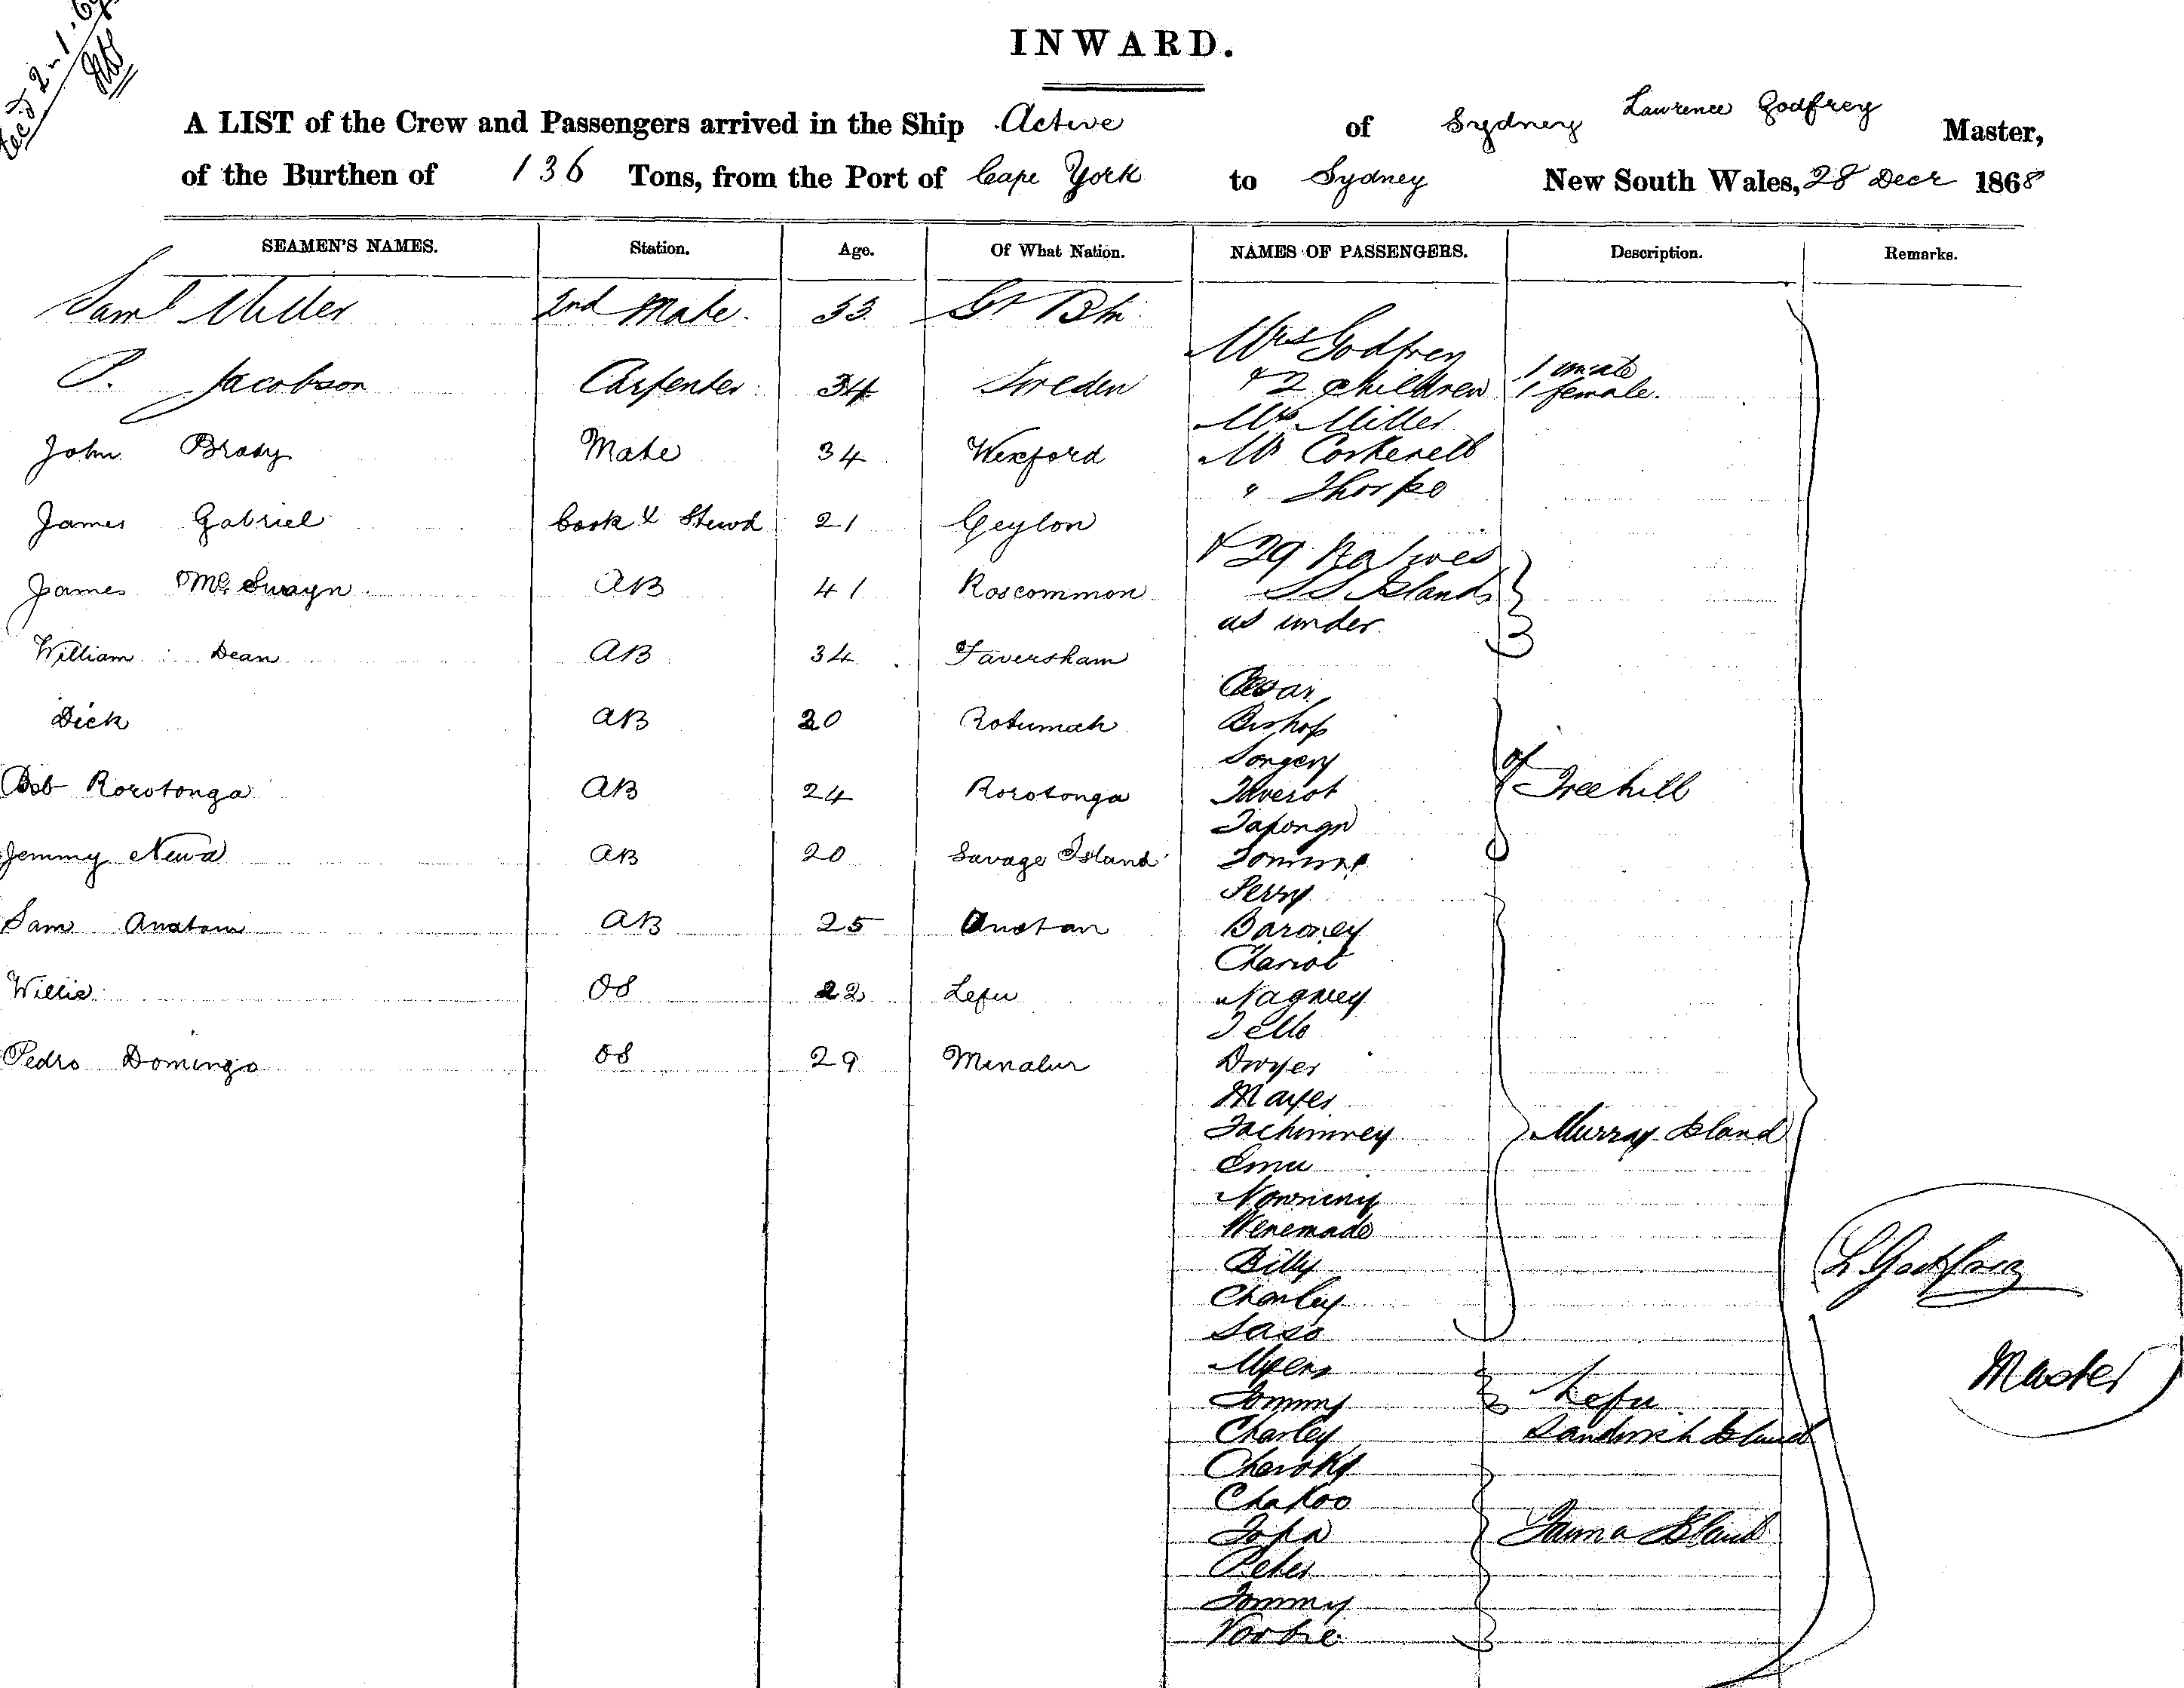 Rec'd 2-1-69
INWARD.
A LIST of the Crew and Passengers arrived in the Ship Active of Sydney Lawrence Godfrey Master,
of the Burthen of 136 Tons, from the Port of Cape York to Sydney New South Wales, 28 Decr 1868
SEAMEN'S NAMES. Station. Age. Of What Nation. NAMES OF PASSENGERS. Description. Remarks.
Saml Miller 2nd Mate. 33 Gt Btn
P. Jacobson Carpenter 34 Sweden
John Brady Mate 34 Wexford
James Gabriel Cook & Stewd 21 Ceylon
James McSwayn AB 41 Roscommon
William Dean AB 34 Faversham
Dick AB 20 Rotumah
Bob Rorotonga AB 24 Rorotonga
Jemmy Newa AB 20 Savage Island
Sam Anatam AB 25 Anatan
Willie OS 22 Lefu
Pedro Domingo OS 29
Mrs Godfrey
& 2 children 1 male
1 female.
Miller
Mr Corkerell
" Thorpe
& 29 Natives
S S Islands
as under
Cesar
Bishop
Songery
Taverot
of Treehill
Tapongn
Tommy
Perry
Baroney
Chariot
Nagney
Tello
Dwyer
Mayer
Tachimrey
Murray Island
Emu
Nowneny
Wenemado
Billy
Charley
Saso
Myers
Tommy
Lefu
Charley Sandwich Island
Cheroky
Chakoo
Topa
Tanna Island
Peter
Tommy
Voobie
L Godfrey
Master